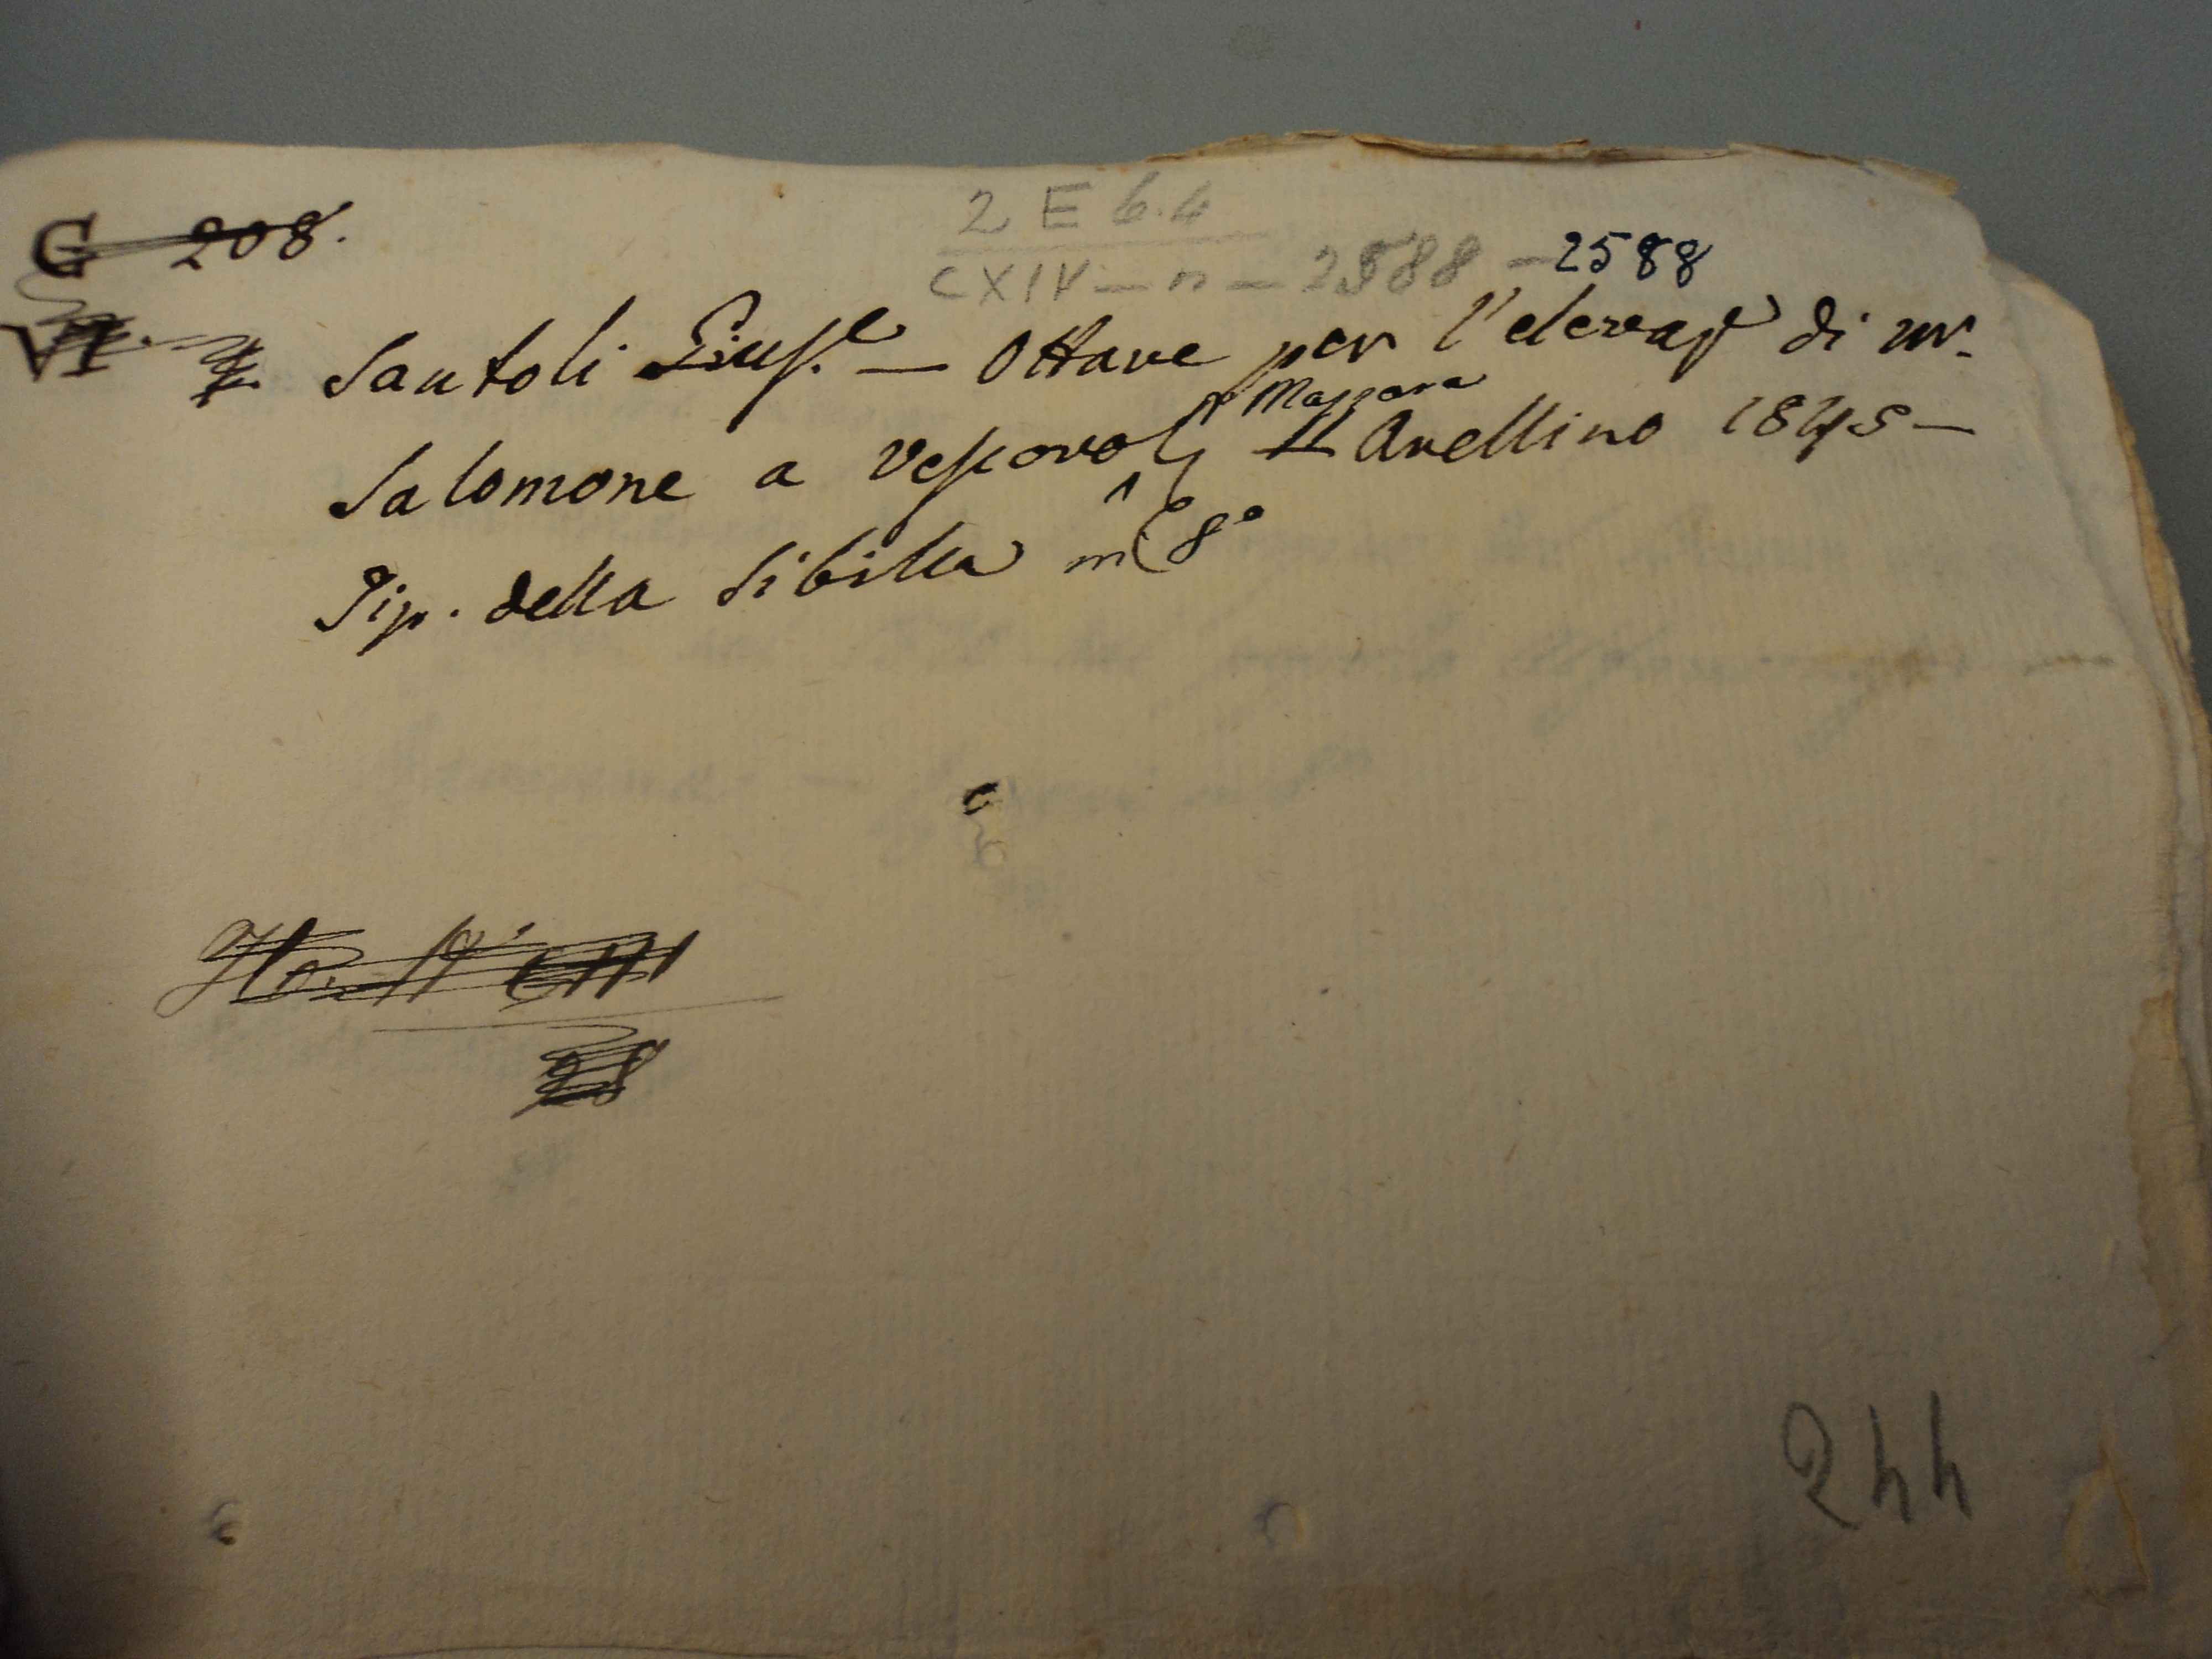 G 208.
2 E 6.4
CXIV - n - 2588 - 2588
VI
Santoli Giuse. — Ottave per l'elevaze di mr.
di Mazzara
Salomone a Vescovo Avellino 1845 —
Tip. della Sibilla in 8°
28
244